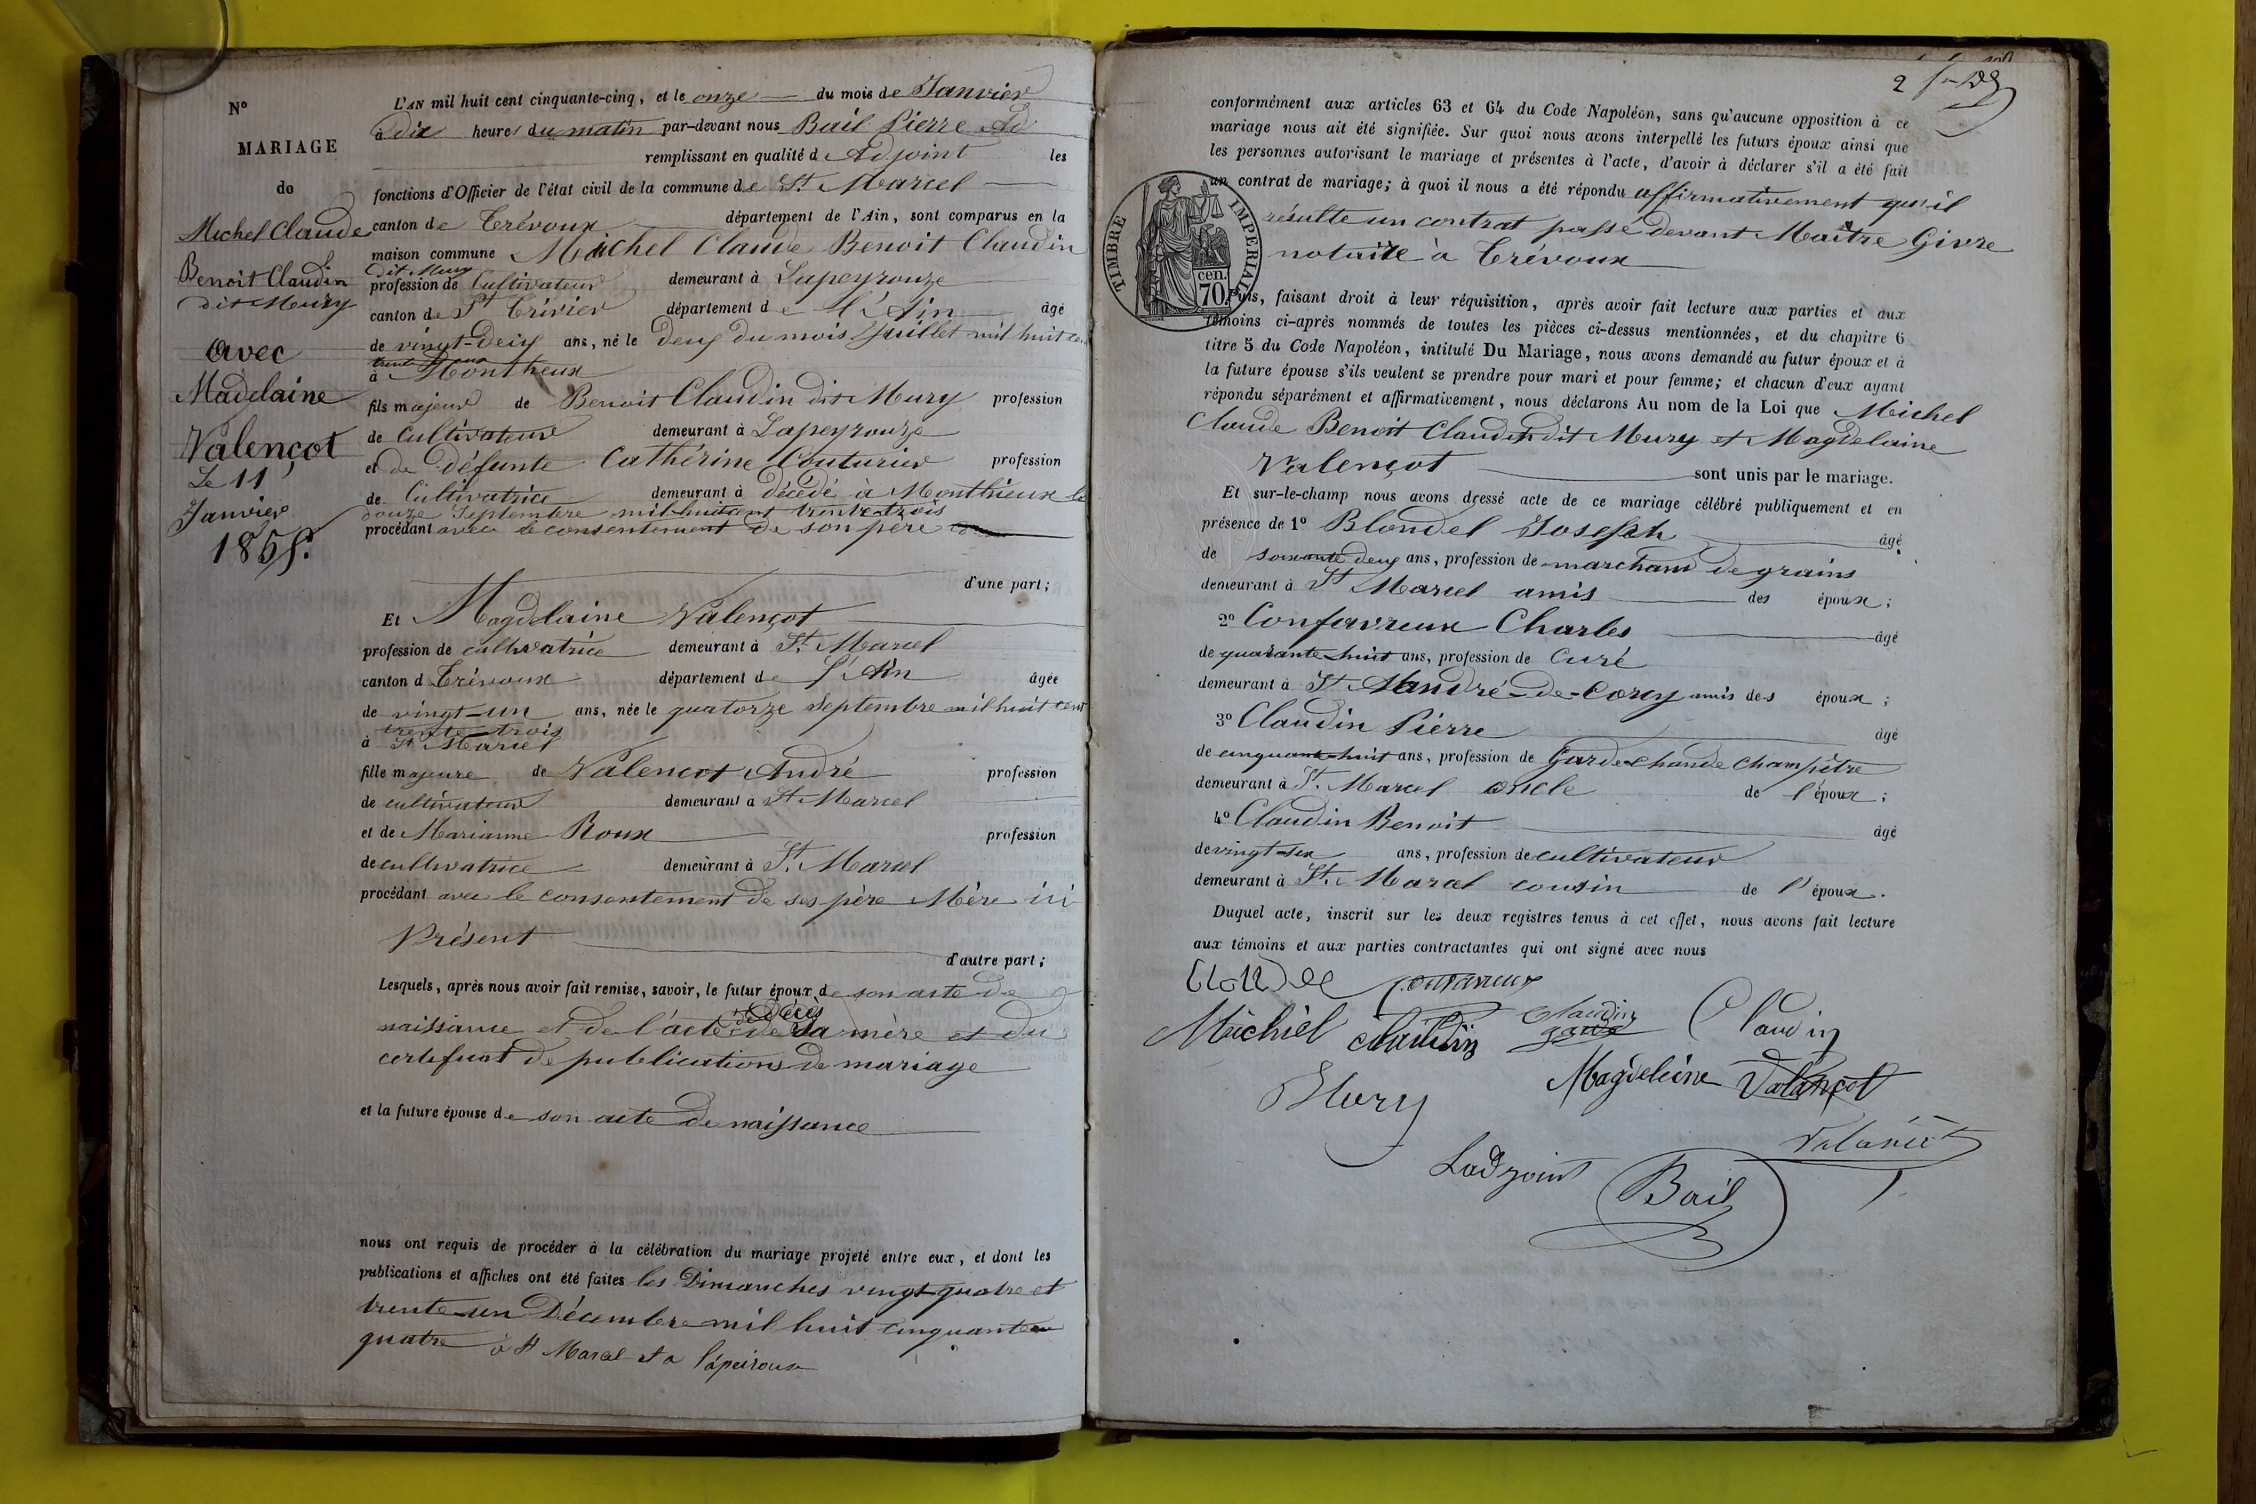 N°
MARIAGE
de
Michel Claude
Benoit Claudin
dit Mury
avec
Madelaine
Valençot
Le 11
Janvier
1855.
L'AN mil huit cent cinquante-cinq, et le onze du mois de Janvier
à dix heures du matin par-devant nous Bail Pierre Ad
remplissant en qualité de Adjoint les
fonctions d'Officier de l'état civil de la commune de St Marcel
canton de Trévoux département de l'Ain, sont comparus en la
maison commune Michel Claude Benoit Claudin
dit Mury
profession de Cultivateur demeurant à Lapeyrouze
canton de St Trivier département de l'Ain âgé
de vingt-deux ans, né le deux du mois Juillet mil huit cen
trente deux
à Monthieux
fils majeur de Benoit Claudin dit Mury profession
de Cultivateur demeurant à Lapeyrouze
et de défunte Cathérine Couturier profession
de Cultivatrice demeurant à décédé à Monthieux le
douze Septembre mil huit cent trente trois
procédant avec le consentement de son père
d'une part;
Et Magdelaine Valençot
profession de cultivatrice demeurant à St Marcel
canton d Trévoux département de l'Ain âgée
de vingt-un ans, née le quatorze Septembre mil huit cent
trente-trois
à St Marcel
fille majeure de Valencot André profession
de cultivateur demeurant a St Marcel
et de Marianne Roux profession
de cultivatrice demeurant à St Marcel
procédant avec le consentement de ses père Mère ici
Présent
d'autre part;
Lesquels, après nous avoir fait remise, savoir, le futur époux de son acte de
naissance et de l'acte de décès de sa mère et du
certificat de publications de mariage
et la future épouse de son acte de naissance
nous ont requis de procéder à la célébration du mariage projeté entre eux, et dont les
publications et affiches ont été faites les Dimanches vingt-quatre et
trente-un Décembre mil huit cinquante
quatre à St Marcel et a lapeirouse
2
conformément aux articles 63 et 64 du Code Napoléon, sans qu'aucune opposition à ce
mariage nous ait été signifiée. Sur quoi nous avons interpellé les futurs époux ainsi que
les personnes autorisant le mariage et présentes à l'acte, d'avoir à déclarer s'il a été fait
un contrat de mariage; à quoi il nous a été répondu affirmativement qu'il
résulte un contrat passé devant Maître Givre
notaire à Trévoux
TIMBRE IMPERIAL
cen.
70.
Puis, faisant droit à leur réquisition, après avoir fait lecture aux parties et aux
témoins ci-après nommés de toutes les pièces ci-dessus mentionnées, et du chapitre 6
titre 5 du Code Napoléon, intitulé Du Mariage, nous avons demandé au futur époux et à
la future épouse s'ils veulent se prendre pour mari et pour femme; et chacun d'eux ayant
répondu séparément et affirmativement, nous déclarons Au nom de la Loi que Michel
Claude Benoit Claudin dit Mury et Magdelaine
Valençot sont unis par le mariage.
Et sur-le-champ nous avons dressé acte de ce mariage célébré publiquement et en
présence de 1° Blondel Joseph âgé
de soixante deux ans, profession de marchand de grains
demeurant à St Marcel amis des époux;
2° Confavreux Charles âgé
de quarante-huit ans, profession de Curé
demeurant à St André-de-Corcy amis des époux;
3° Claudin Pierre âgé
de cinquante-huit ans, profession de Garde champêtre
demeurant à St. Marcel oncle de l'époux;
4° Claudin Benoit âgé
de vingt-six ans, profession de cultivateur
demeurant à St. Marcel cousin de l'époux.
Duquel acte, inscrit sur les deux registres tenus à cet effet, nous avons fait lecture
aux témoins et aux parties contractantes qui ont signé avec nous
Confavreux
Michiel Claudin Claudin garde Claudin
Mury Magdeleine Valançot
Valancot
Ladjoint Bail